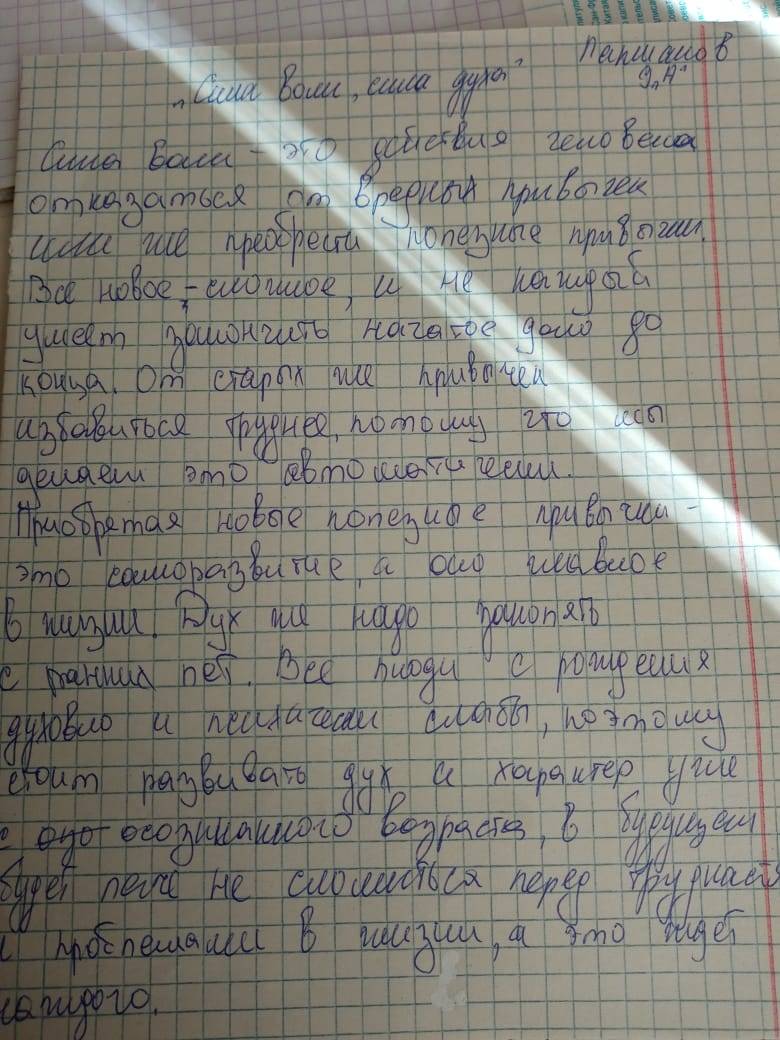 Лапшанов
9 „А"
„Сила воли, сила духа"
Сила воли - это действия человека
отказаться от вредных привычек
или же преобрести полезные привычки.
Все новое - сложное, и не каждый
умеет закончить начатое дело до
конца. От старых же привычек
избавиться труднее, потому что мы
делаем это автоматически.
Приобретая новые полезные привычки -
это саморазвитие, а оно главное
в жизни. Дух же надо закалять
с ранних лет. Все люди с рождения
духовно и психически слабы, поэтому
стоит развивать дух и характер уже
с осознанного возраста, в будущем
будет легче не сломиться перед труднаст
и проблемами в жизни, а это ждет
каждого.